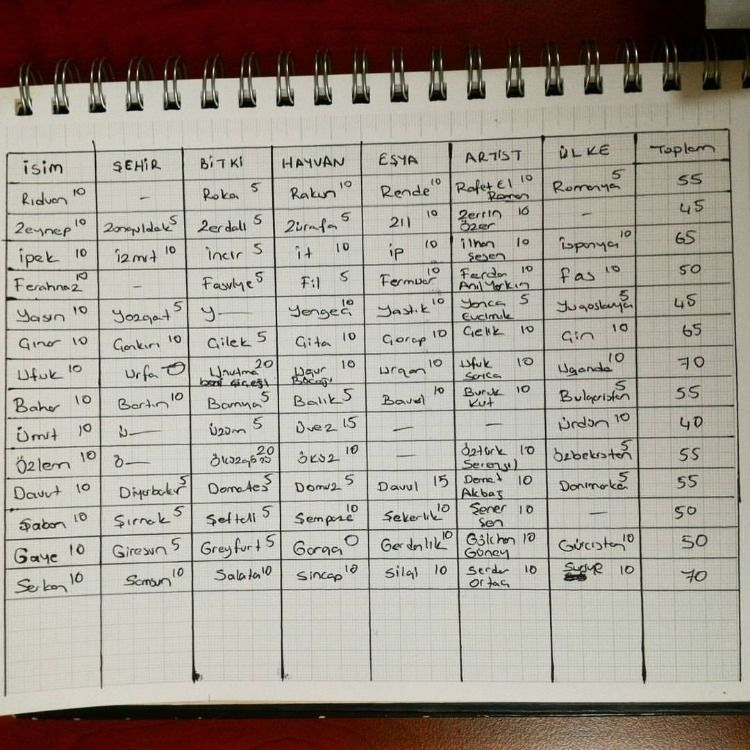 İSİM ŞEHİR BİTKİ HAYVAN EŞYA ARTİST ÜLKE Toplam
Rıdvan 10 — Roka 5 Rakun 10 Rende 10 Rafet El Roman 10 Romanya 5 55
Zeynep 10 Zonguldak 5 Zerdali 5 Zürafa 5 Zil 10 Zerrin Özer 10 — 45
İpek 10 İzmit 10 İncir 5 İt 10 İp 10 İlhan Şeşen 10 İspanya 10 65
Ferahnaz 10 — Fasulye 5 Fil 5 Fermuar 10 Ferdan Anıl Yarkın 10 Fas 10 50
Yasin 10 Yozgat 5 Y— Yengeç 10 Yastık 10 Yonca Evcimik 5 Yugoslavya 5 45
Çınar 10 Çankırı 10 Çilek 5 Çita 10 Çorap 10 Çelik 10 Çin 10 65
Ufuk 10 Urfa 0 Unutma beni çiçeği 20 Uğur Böceği 10 Urgan 10 Ufuk Sarıca 10 Uganda 10 70
Bahar 10 Bartın 10 Bamya 5 Balık 5 Bavul 10 Burak Kut 10 Bulgaristan 5 55
Ümit 10 Ü— Üzüm 5 Üvez 15 — — Ürdün 10 40
Özlem 10 Ö— Öküzgözü 20 Öküz 10 — Öztürk Serengil 10 Özbekistan 5 55
Davut 10 Diyarbakır 5 Domates 5 Domuz 5 Davul 15 Demet Akbağ 10 Danimarka 5 55
Şaban 10 Şırnak 5 Şeftali 5 Şempaze 10 Şekerlik 10 Şener Şen 10 — 50
Gaye 10 Giresun 5 Greyfurt 5 Garga 0 Gerdanlık 10 Gölhan Güney 10 Gürcistan 10 50
Serkan 10 Samsun 10 Salata 10 Sincap 10 Silgi 10 Serdar Ortaç 10 Suriye 10 70